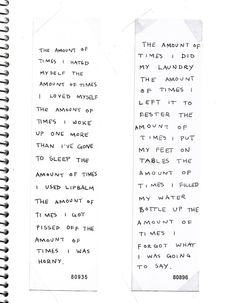 THE AMOUNT OF
TIMES I HATED
MYSELF THE
AMOUNT OF TIMES
I LOVED MYSELF
THE AMOUNT OF
TIMES I WOKE
UP ONE MORE
THAN I'VE GONE
TO SLEEP THE
AMOUNT OF TIMES
I USED LIPBALM
THE AMOUNT OF
TIMES I GOT
PISSED OFF THE
AMOUNT OF
TIMES I WAS
HORNY.
80935
THE AMOUNT OF
TIMES I DID
MY LAUNDRY
THE AMOUNT
OF TIMES I
LEFT IT TO
FESTER THE
AMOUNT OF
TIMES I PUT
MY FEET ON
TABLES THE
AMOUNT OF
TIMES I FILLED
MY WATER
BOTTLE UP THE
AMOUNT OF
TIMES I
FORGOT WHAT
I WAS GOING
TO SAY.
80896